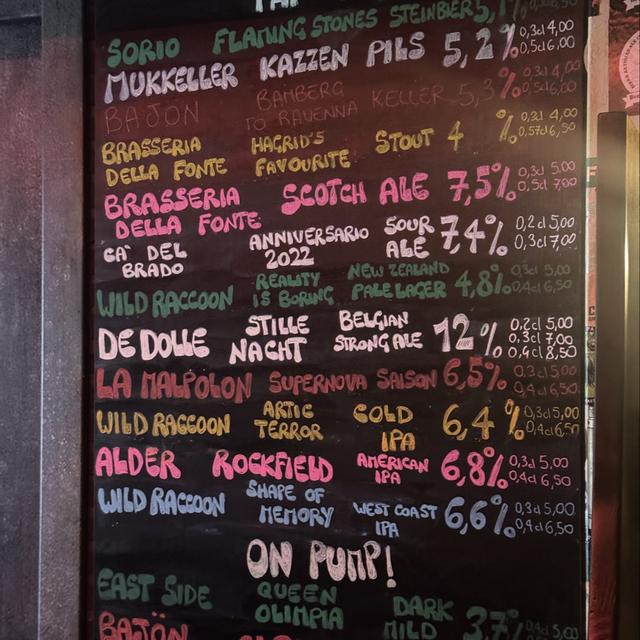 SORIO FLAMING STONES STEINBIER 5,1%
MUKKELLER KAZZEN PILS 5,2% 0,3cl 4,00
0,5cl 6,00
BAJÖN BAMBERG TO RAVENNA KELLER 5,3% 0,3cl 4,00
0,5cl 6,00
BRASSERIA DELLA FONTE HAGRID'S FAVOURITE STOUT 4% 0,2cl 4,00
0,57cl 6,50
BRASSERIA DELLA FONTE SCOTCH ALE 7,5% 0,3cl 5,00
0,5cl 7,00
CA' DEL BRADO ANNIVERSARIO 2022 SOUR ALE 7,4% 0,2cl 5,00
0,3cl 7,00
WILD RACCOON REALITY IS BORING NEW ZEALAND PALE LAGER 4,8% 0,3cl 5,00
0,4cl 6,50
DE DOLLE STILLE NACHT BELGIAN STRONG ALE 12% 0,2cl 5,00
0,3cl 7,00
0,4cl 8,50
LA MALPOLON SUPERNOVA SAISON 6,5% 0,3cl 5,00
0,4cl 6,50
WILD RACCOON ARTIC TERROR COLD IPA 6,4% 0,3cl 5,00
0,4cl 6,50
ALDER ROCKFIELD AMERICAN IPA 6,8% 0,3cl 5,00
0,4cl 6,50
WILD RACCOON SHAPE OF MEMORY WEST COAST IPA 6,6% 0,3cl 5,00
0,4cl 6,50
ON PUMP!
EAST SIDE QUEEN OLIMPIA DARK MILD 3,7%
BAJÖN